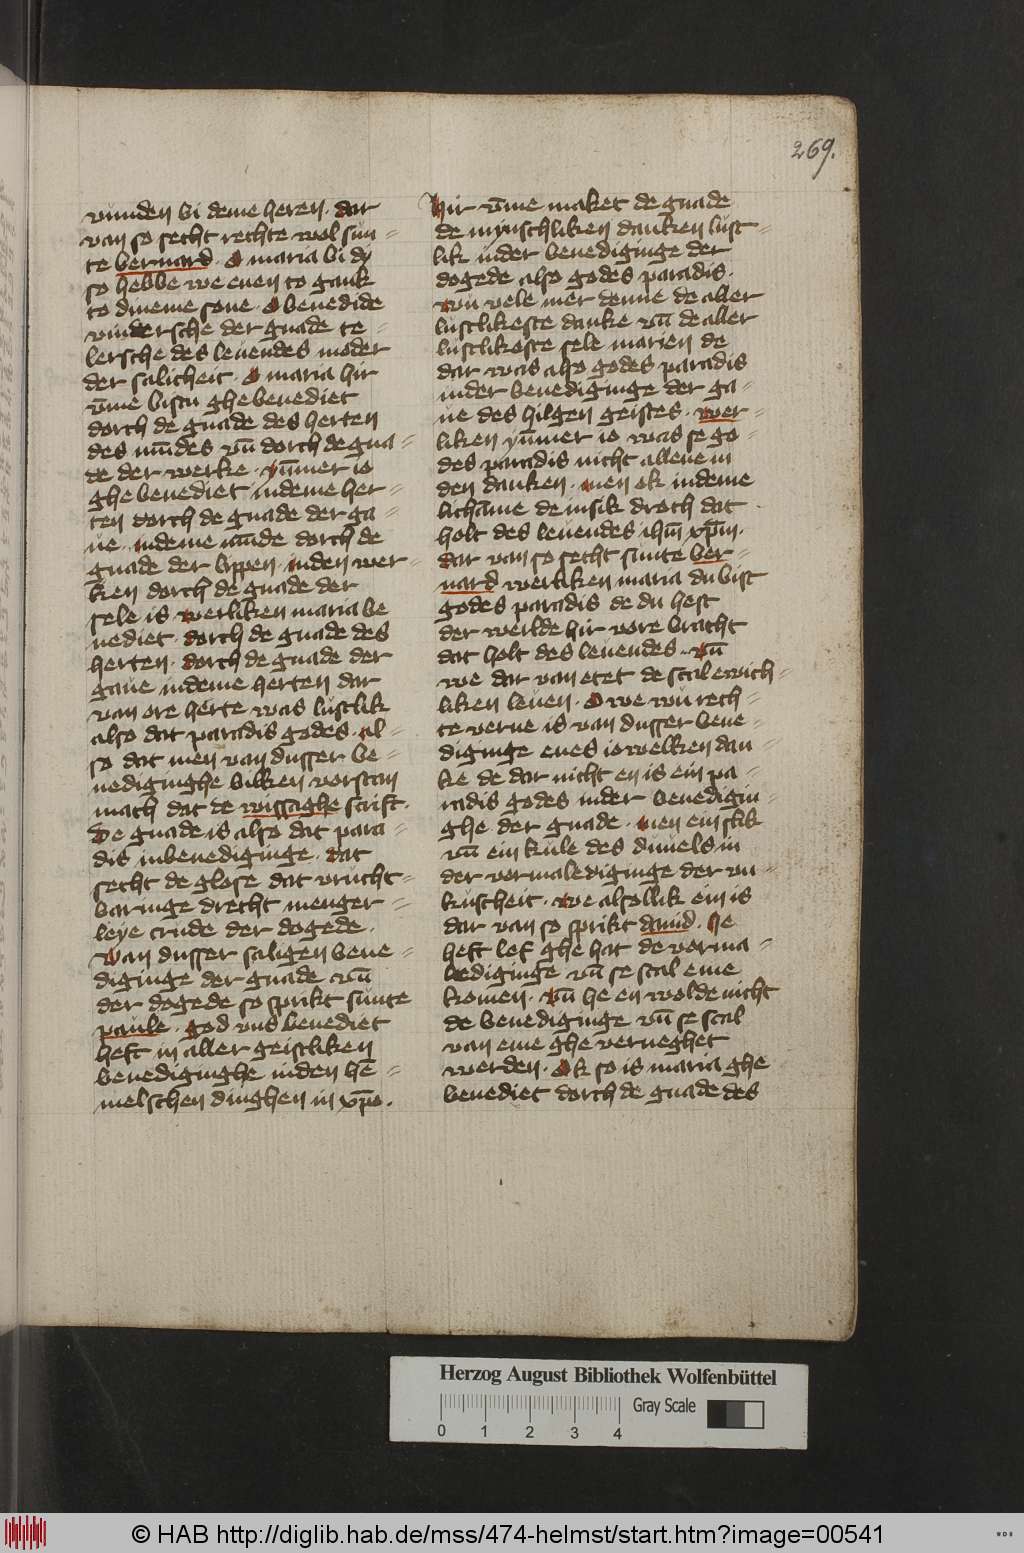 269.
vunden bi deme heren. dar
van so secht rechte wol sun=
te bernard. O maria bi dy
so hebbe we enen to gank
to dineme sone. O benedide
vindersche der gnade te=
lersche des leuendes moder
der salicheit. O maria hir
vm̄e bistu ghebenediet
dorch de gnade des herten
des mūdes vn̄ dorch de gna=
de der werke. ym̄mer io
ghebenediet indeme her=
ten dorch de gnade der ga=
ue. indeme mūde dorch de
gnade der lippen. inden wer=
ken dorch de gnade der
sele is werliken maria be
nediet. dorch de gnade des
herten. dorch de gnade der
gaue indeme herten dar
van ore herte was lustlik
also dat paradis godes. al=
so dat men van dusser be=
nediginghe billken vorstan
mach dat de wissaghe scrift.
De gnade is also dat para=
dis inbenediginge. dat
secht de glose dat vrucht=
baringe drecht menger=
leye crude der dogede.
Van dusser saligen bene=
diginge der gnade vn̄
der dogede so sprikt sunte
paule. god vns benediet
heft in aller geistliken
benediginghe inden he=
melschen dinghen in xp̄o.
Hir vm̄e maket de gnade
de mynschliken danken lust=
lik inder benediginge der
dogede also godes paradis.
Wu vele mer donne de aller
lustlikeste danke vn̄ de aller
lustlikeste sele marien de
dar was also godes paradis
inder benediginge der ga=
ue des hilgen geistes. wer=
liken ym̄mer io was se go=
des paradis nicht allene in
den danken. men ok indeme
lichāme de insik droch dat
holt des leuendes ihm̄ xp̄m.
dar van so secht sunte ber=
nard werliken maria du bist
godes paradis de du hest
der werlde hir vore bracht
dat holt des leuendes. vn̄
we dar van etet de scal ewich=
liken leuen. O we wu rech=
te verne is van dusser bene=
diginge enes iowelken dan=
ke de dar nicht en is ein pa=
radis godes inder benedigin=
ghe der gnade. men ein slik
vn̄ ein kule des duuels in
der vormalediginge der vn=
kuscheit. we alsollik ein is
dar van so sprikt dauid. He
heft lef ghe hat de verma=
lediginge vn̄ se scal eme
komen. vn̄ he en wolde nicht
de benediginge vn̄ se scal
van eme ghe verneghet
werden. Ok so is maria ghe
benediet dorch de gnade des
Herzog August Bibliothek Wolfenbüttel
0 1 2 3 4
Gray Scale
© HAB http://diglib.hab.de/mss/474-helmst/start.htm?image=00541
WDB